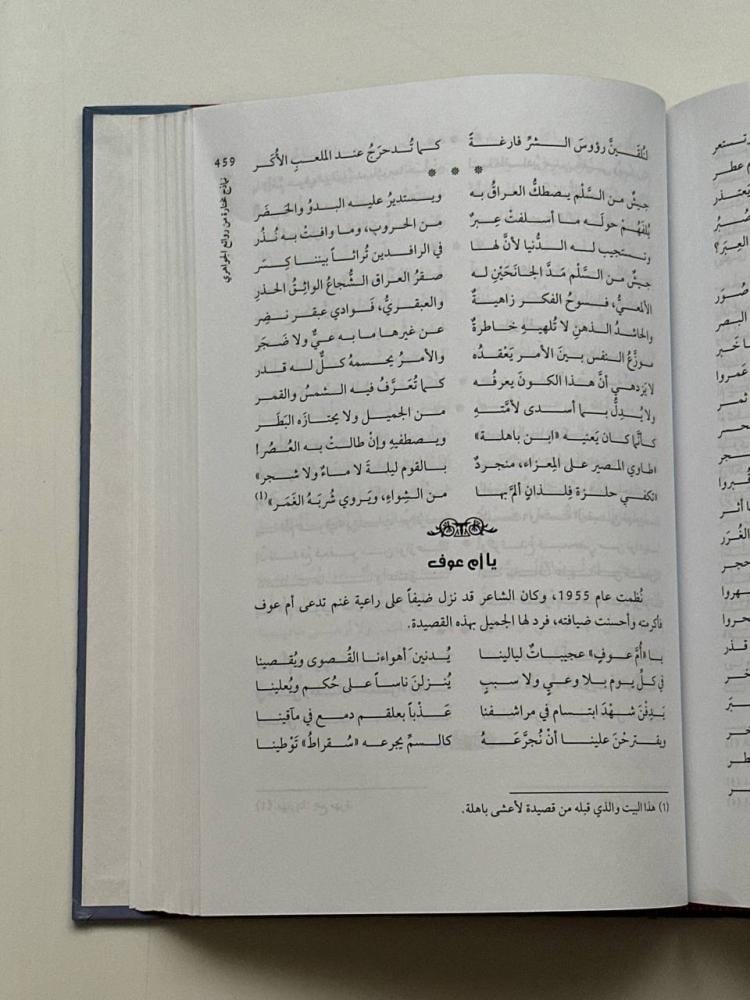 459
نماذج مختارة من روائع الجواهري
لتُلقَينَّ رؤوسَ الشرِّ فارغةً كما تُدحرَجُ عند الملعبِ الأُكَر
* * *
جيشٌ من السَّلْم يصطكُّ العراقُ به ويستديرُ عليه البدوُ والحَضَر
يُلهَهُمْ حولَه ما أسلفتْ عِبرٌ من الحروبِ، وما وافتْ به نُذُر
وتستجيب له الدُّنيا لأنَّ لها في الرافدين تُراثاً بيننا كِسَر
جيشٌ من السَّلْم مَدَّ الجَانحَيْنِ له صقرُ العراق الشُّجاعُ الواثِقُ الحذرِ
الألمعيُّ، فَوحُ الفكر زاهيةٌ والعبقريُّ، فَوادي عبقر نضِر
والحاشدُ الذهنِ لا تُلهيهِ خاطرةٌ عن غيرها ما به عيٌّ ولا ضَجَر
موزَّعُ النفس بينَ الأمر يَعْقده والأمرُ يحسمهُ كلٌّ له قدر
لا يَزدهي أنَّ هذا الكونَ يعرفُه كما تُعَرَّفُ فيه الشمسُ والقمر
ولا يُدِلُّ بما أسدى لأمَّتهِ من الجميل ولا يجتازه البَطَر
كأنَّما كان يَعنيه «ابن باهلة» ويصطفيهِ وإنْ طالتْ به العُصُر!
«طاوي المصير على المعزاء، منجردٌ بالقوم ليلةَ لا ماءٌ ولا شجر»
«تكفي حزة فِلذانٍ ألمَّ بها من الشِواءِ، ويَروي شُربَهُ الغَمَر» (1)
يا أم عوف
نُظمت عام 1955، وكان الشاعر قد نزل ضيفاً على راعية غنم تدعى أم عوف
فأكرمته وأحسنت ضيافته، فرد لها الجميل بهذه القصيدة.
يا «أُمَّ عوفٍ» عجيباتٌ ليالينا يُدنينَ أهواءَنا القُصوى ويُقصينا
في كلِّ يومٍ بلا وعيٍ ولا سببٍ يُنزلنَ ناساً على حُكمٍ ويُعلينا
يَدِفْنَ شهْدَ ابتسام في مراشفنا عَذْباً بعلقم دمع في مآقينا
ويقترحْنَ علينا أنْ نُجرَّعَهُ كالسمِّ يجرعه «سُقراطُ» تَوْطينا
(1) هذا البيت والذي قبله من قصيدة لأعشى باهلة.